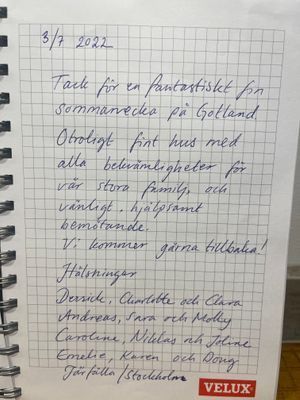 3/7 2022
Tack för en fantastiskt fin
sommarvecka på Gotland
Otroligt fint hus med
alla bekvämligheter för
vår stora familj och
vänligt, hjälpsamt
bemötande.
Vi kommer gärna tillbaka!
Hälsningar
Derrick, Charlotte och Clara
Andreas, Sara och Molly
Caroline, Niklas och Joline
Emelie, Karen och Doug
Järfälla/Stockholm
VELUX